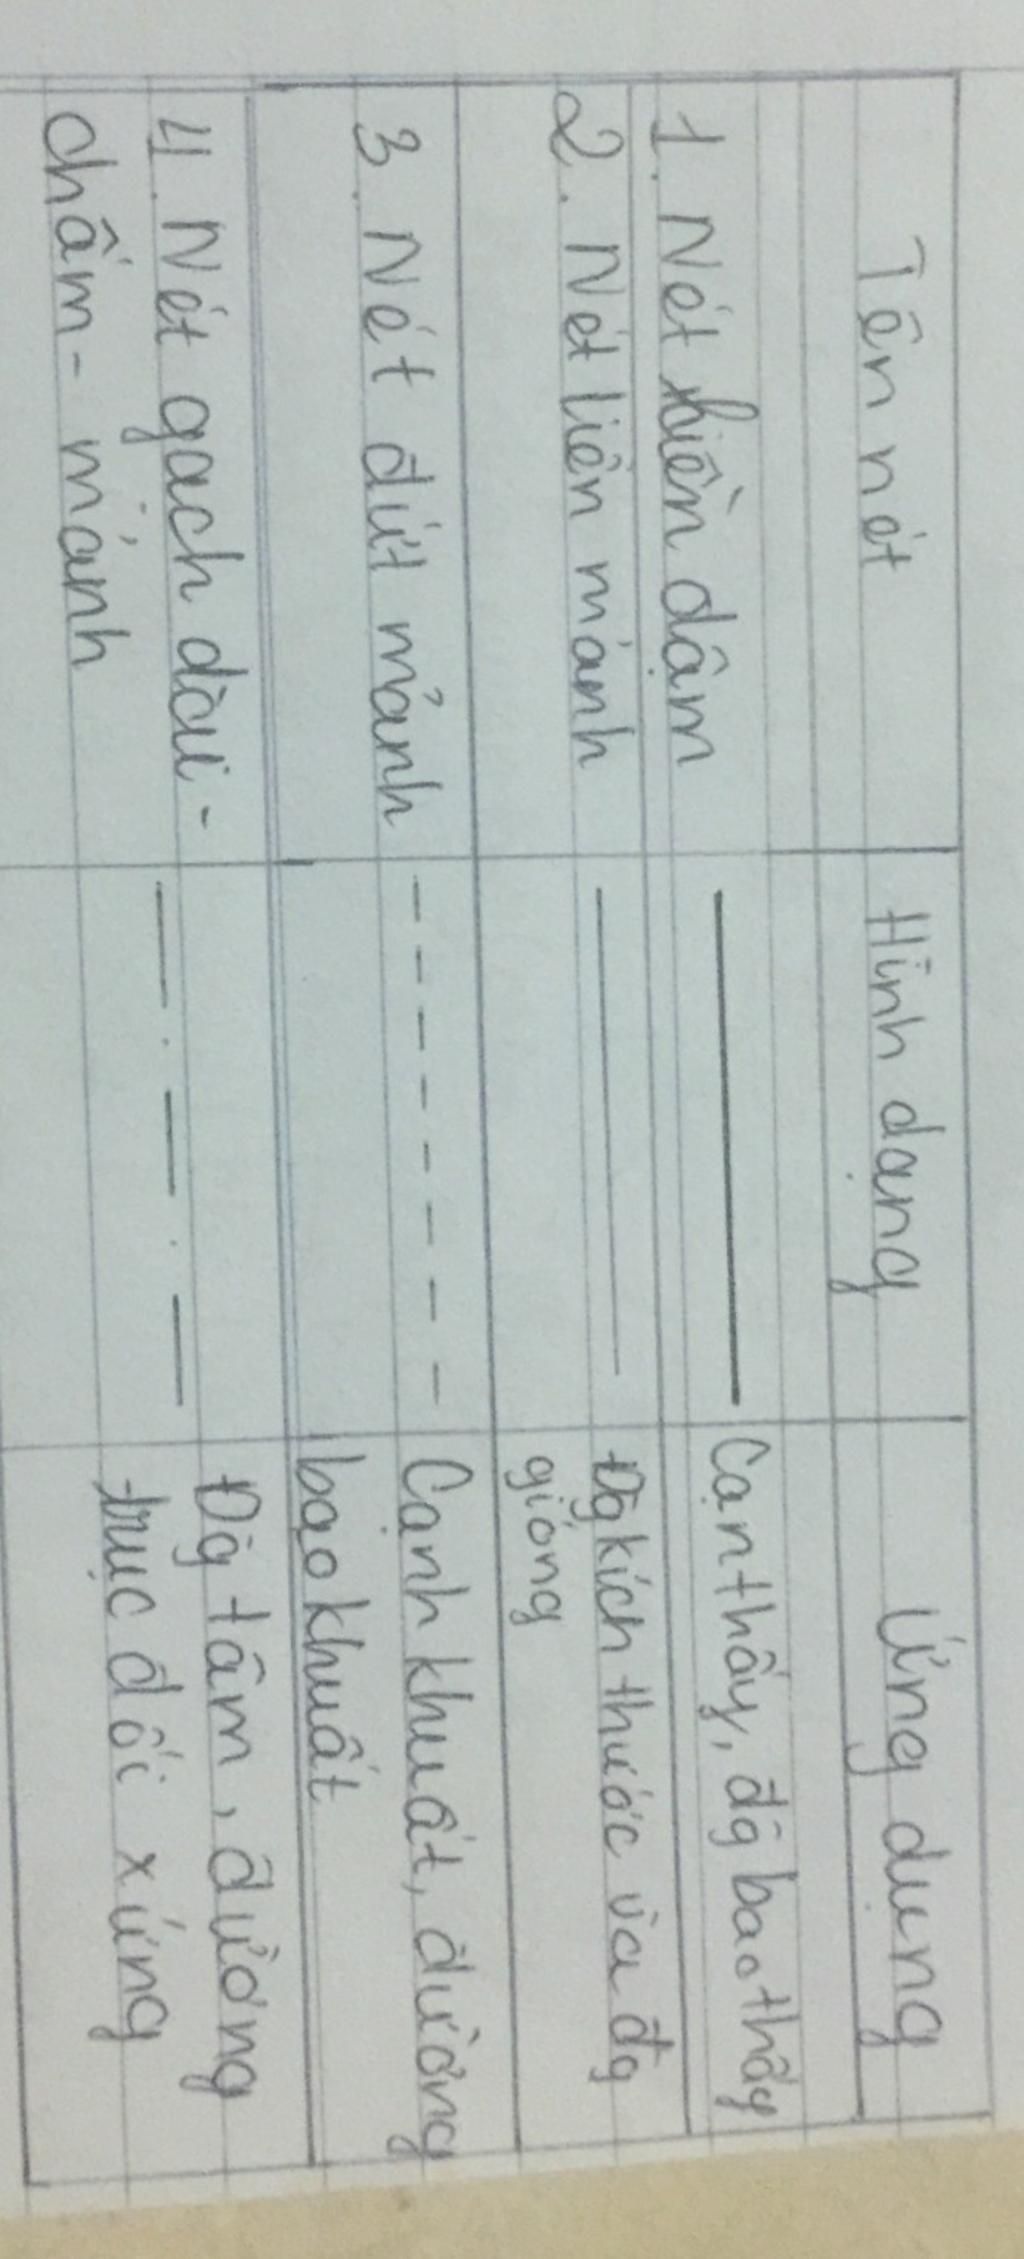 Tên nét
Hình dạng
Ứng dụng
1. Nét liền dậm
Cạn thấy, đg bao thấy
2. Nét liền mảnh
Đg kích thước và đg
gióng
3. Nét đứt mảnh
Cạnh khuất, đường
bao khuất
4. Nét gạch dài -
chấm - mảnh
Đg tâm, đường
trục đối xứng